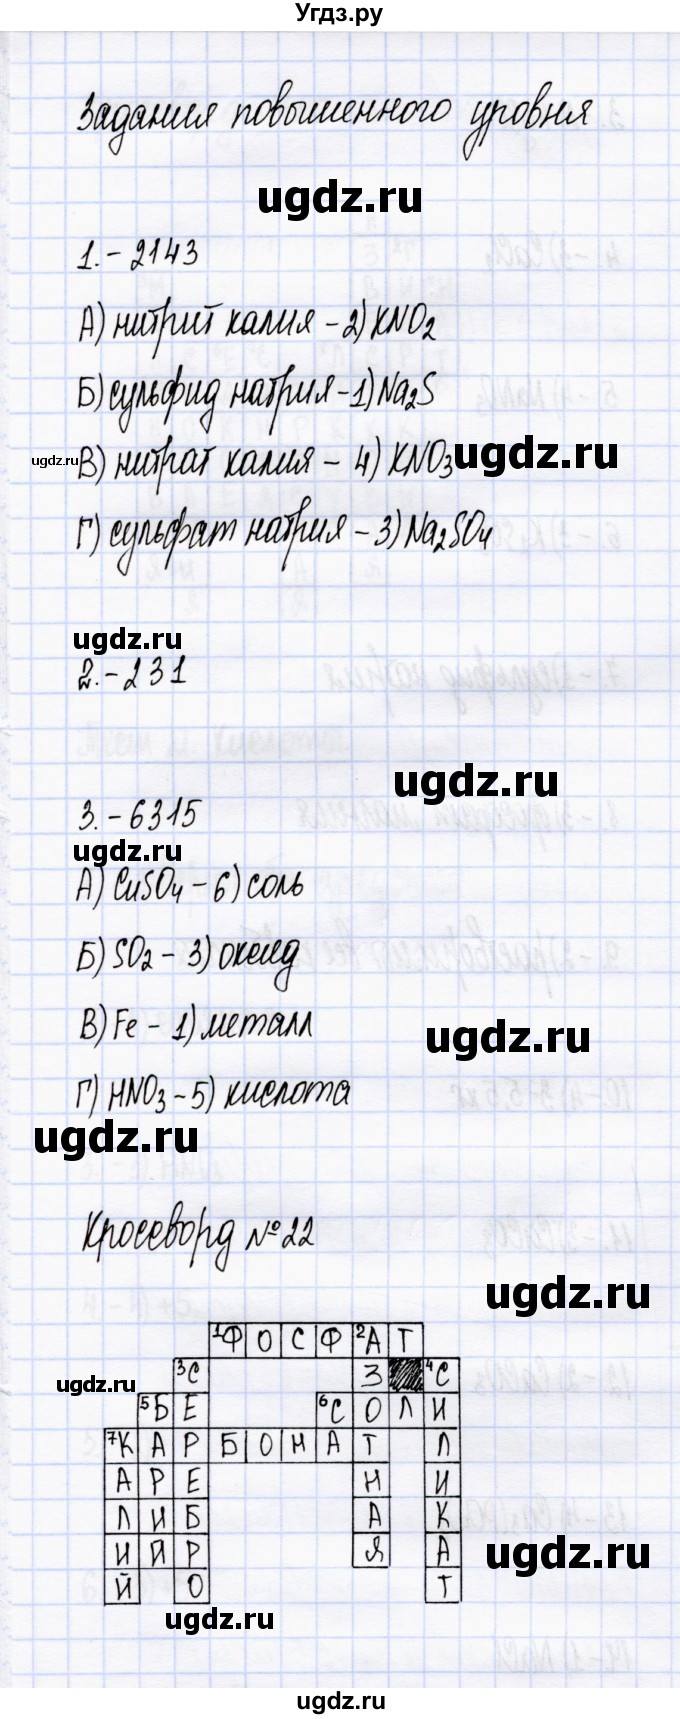 Угдз.ру
Задания повышенного уровня
ugdz.ru
1. - 2143
А) нитрит калия - 2) KNO2
Б) сульфид натрия - 1) Na2S
ugdz.ru В) нитрат калия - 4) KNO3 ugdz.ru
Г) сульфат натрия - 3) Na2SO4
ugdz.ru
2. - 231
ugdz.ru
3. - 6315
ugdz.ru
А) CuSO4 - 6) соль
Б) SO2 - 3) оксид
В) Fe - 1) металл
ugdz.ru
Г) HNO3 - 5) кислота
ugdz.ru
Кроссворд №22
ugdz.ru
1Ф О С Ф 2А Т
ugdz.ru 3С З 4С
5Б Е 6С О Л И
7К А Р Б О Н А Т Л
А Р Е Н И
Л И Б А К
И Й Р Я А ugdz.ru
Й О Т
ugdz.ru
ugdz.ru